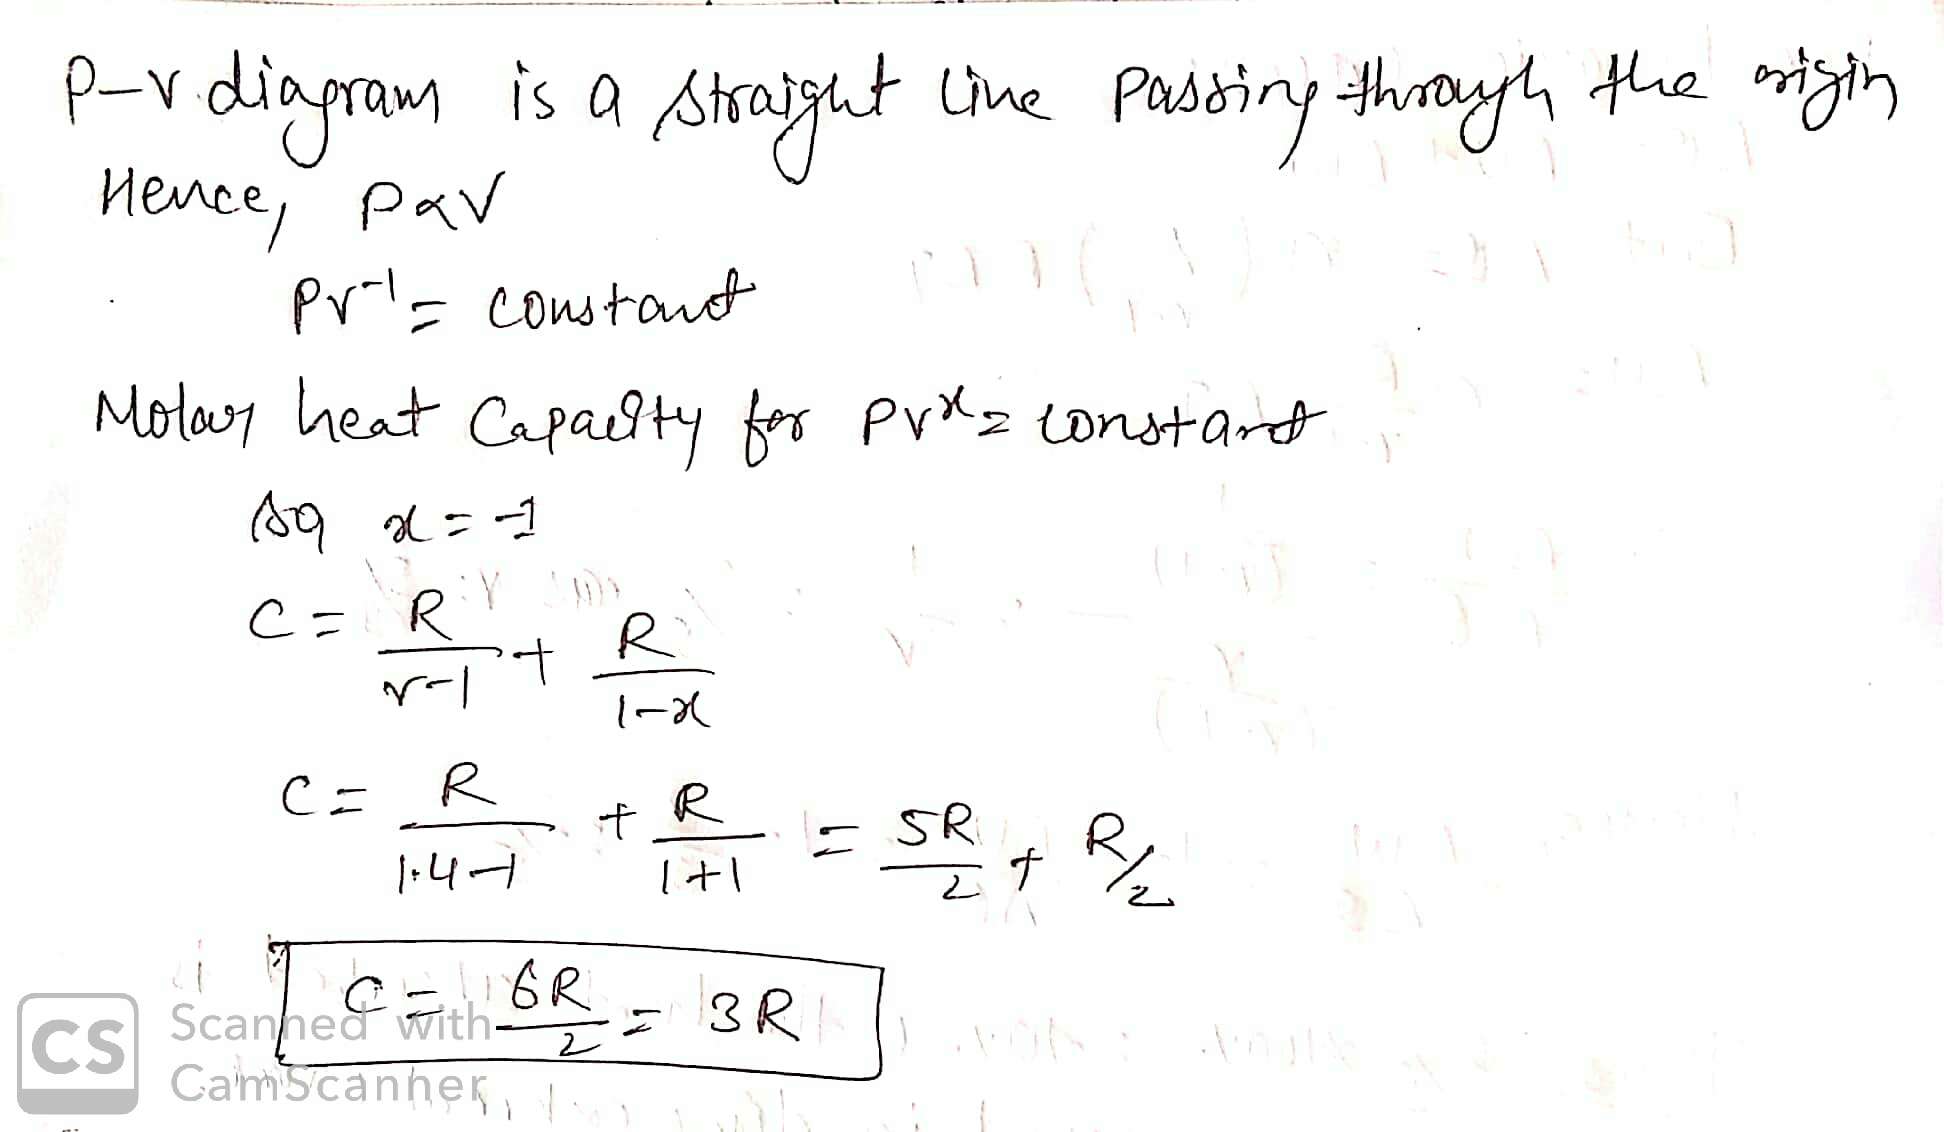 P-V diagram is a straight line passing through the origin
Hence, P∝V
PV⁻¹ = constant
Molar heat capacity for PVˣ = constant
x = -1
C = R/(γ-1) + R/(1-x)
C = R/(1.4-1) + R/(1+1) = 5R/2 + R/2
C = 6R/2 = 3R
CS Scanned with
CamScanner